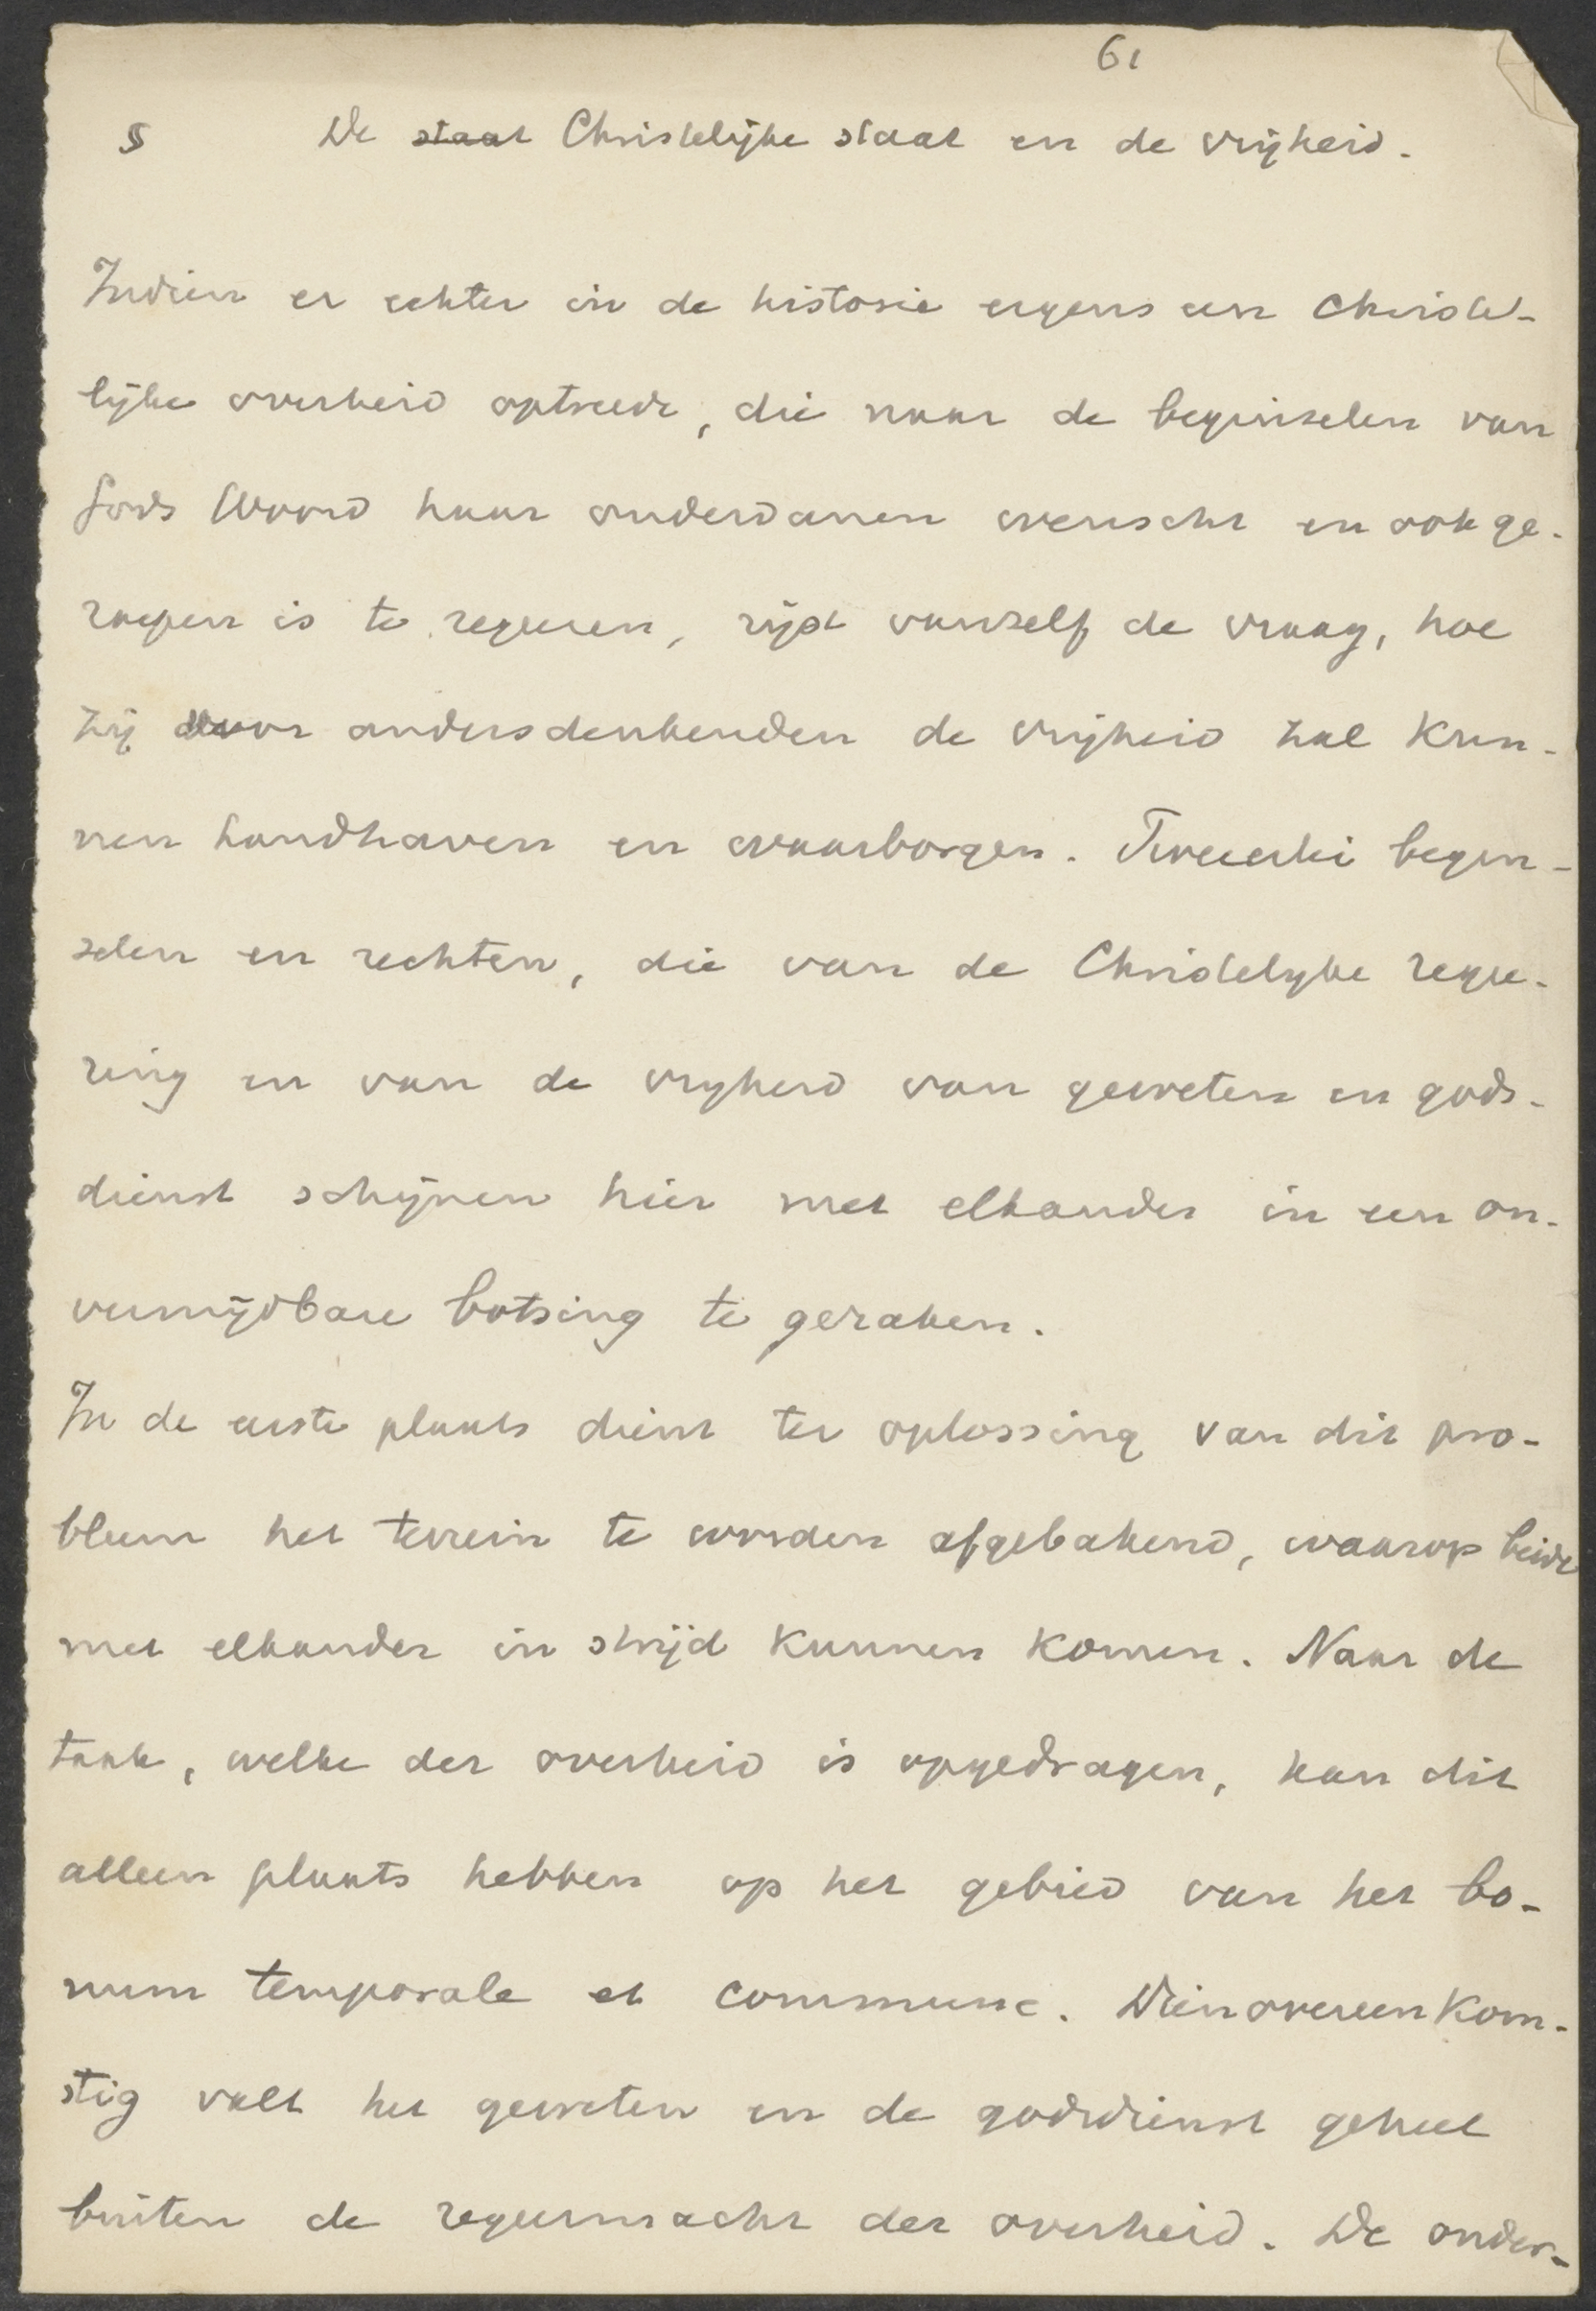 61
§ De staat Christelijke staat en de vrijheid.
Indien er echter in de historie ergens een Christe-
lijke overheid optreedt, die naar de beginselen van
Gods Woord haar onderdanen wenscht en ook ge-
roepen is te regeeren, rijst vanzelf de vraag, hoe
zij voor andersdenkenden de vrijheid zal kun-
nen handhaven en waarborgen. Tweeërlei begin-
selen en rechten, die van de Christelijke regee-
ring en van de vrijheid van geweten en gods-
dienst schijnen hier met elkander in een on-
vermijdbare botsing te geraken.
In de eerste plaats dient ter oplossing van dit pro-
bleem het terrein te worden afgebakend, waarop beide
met elkander in strijd kunnen komen. Naar de
taak, welke der overheid is opgedragen, kan dit
alleen plaats hebben op het gebied van het bo-
num temporale et commune. Dienovereenkom-
stig valt het geweten en de godsdienst geheel
buiten de regeermacht der overheid. De onder-